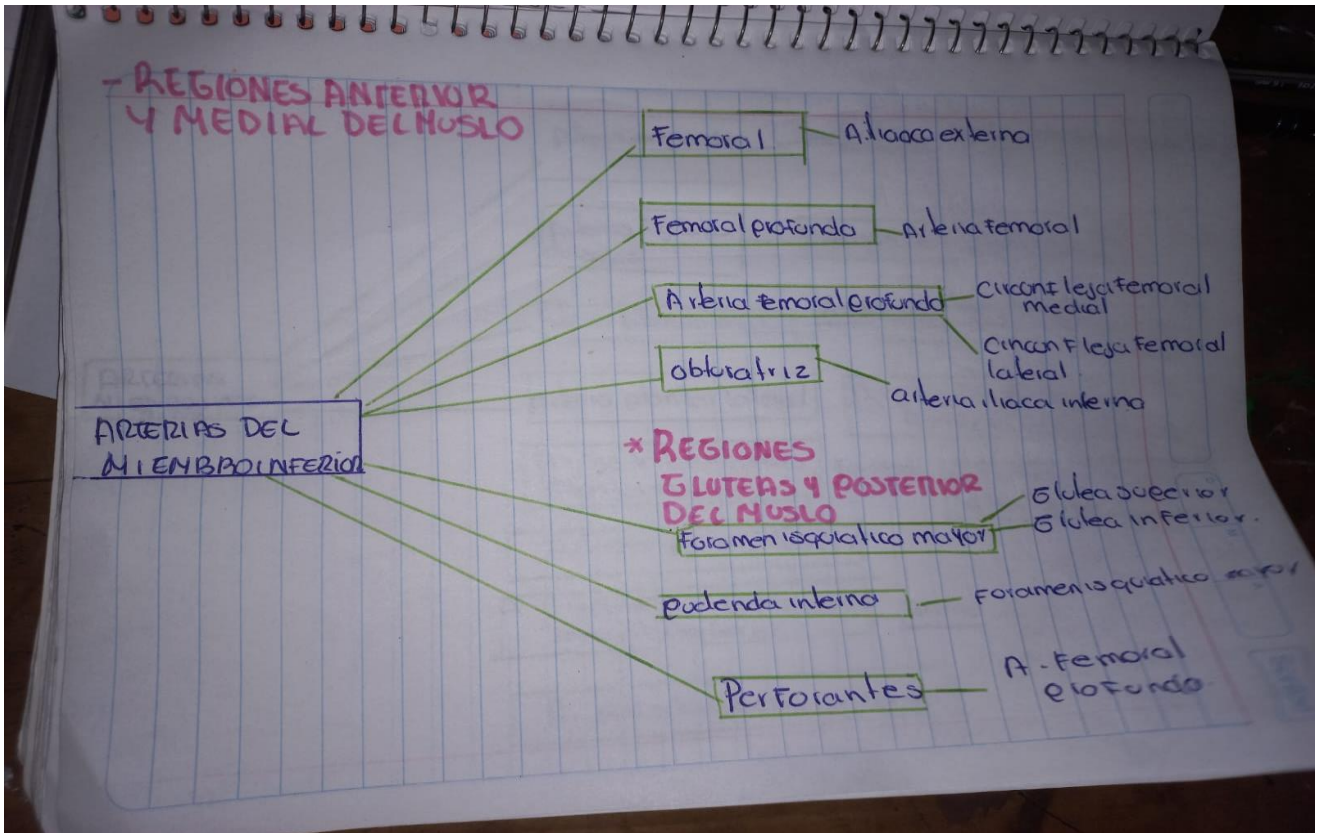 - REGIONES ANTERIOR
Y MEDIAL DEL MUSLO
Femoral
A. iliaca externa
Femoral profundo
Arteria femoral
Arteria femoral profundo
circonfleja femoral
medial
Circonfleja femoral
lateral
obturatriz
arteria iliaca interna
ARTERIAS DEL
MIEMBRO INFERIOR
* REGIONES
GLUTEAS Y POSTERIOR
DEL MUSLO
Foramen isquiatico mayor
Glutea superior
Glutea inferior.
pudenda interna
Foramen isquiatico mayor
Perforantes
A. Femoral
profundo.